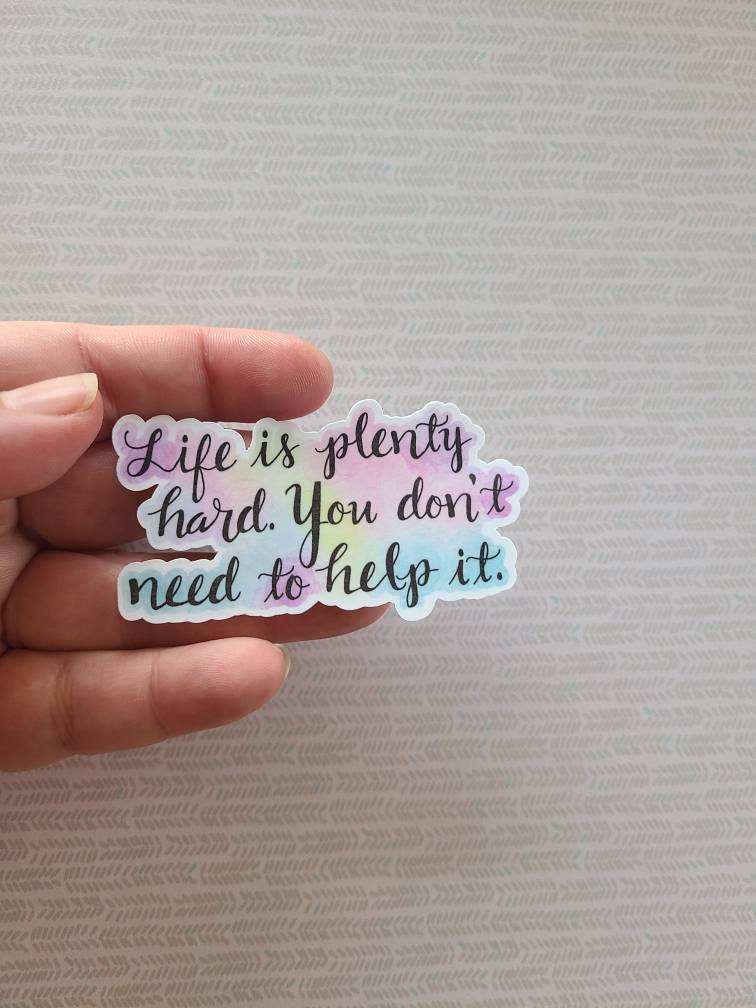 Life is plenty
hard. You don't
need to help it.